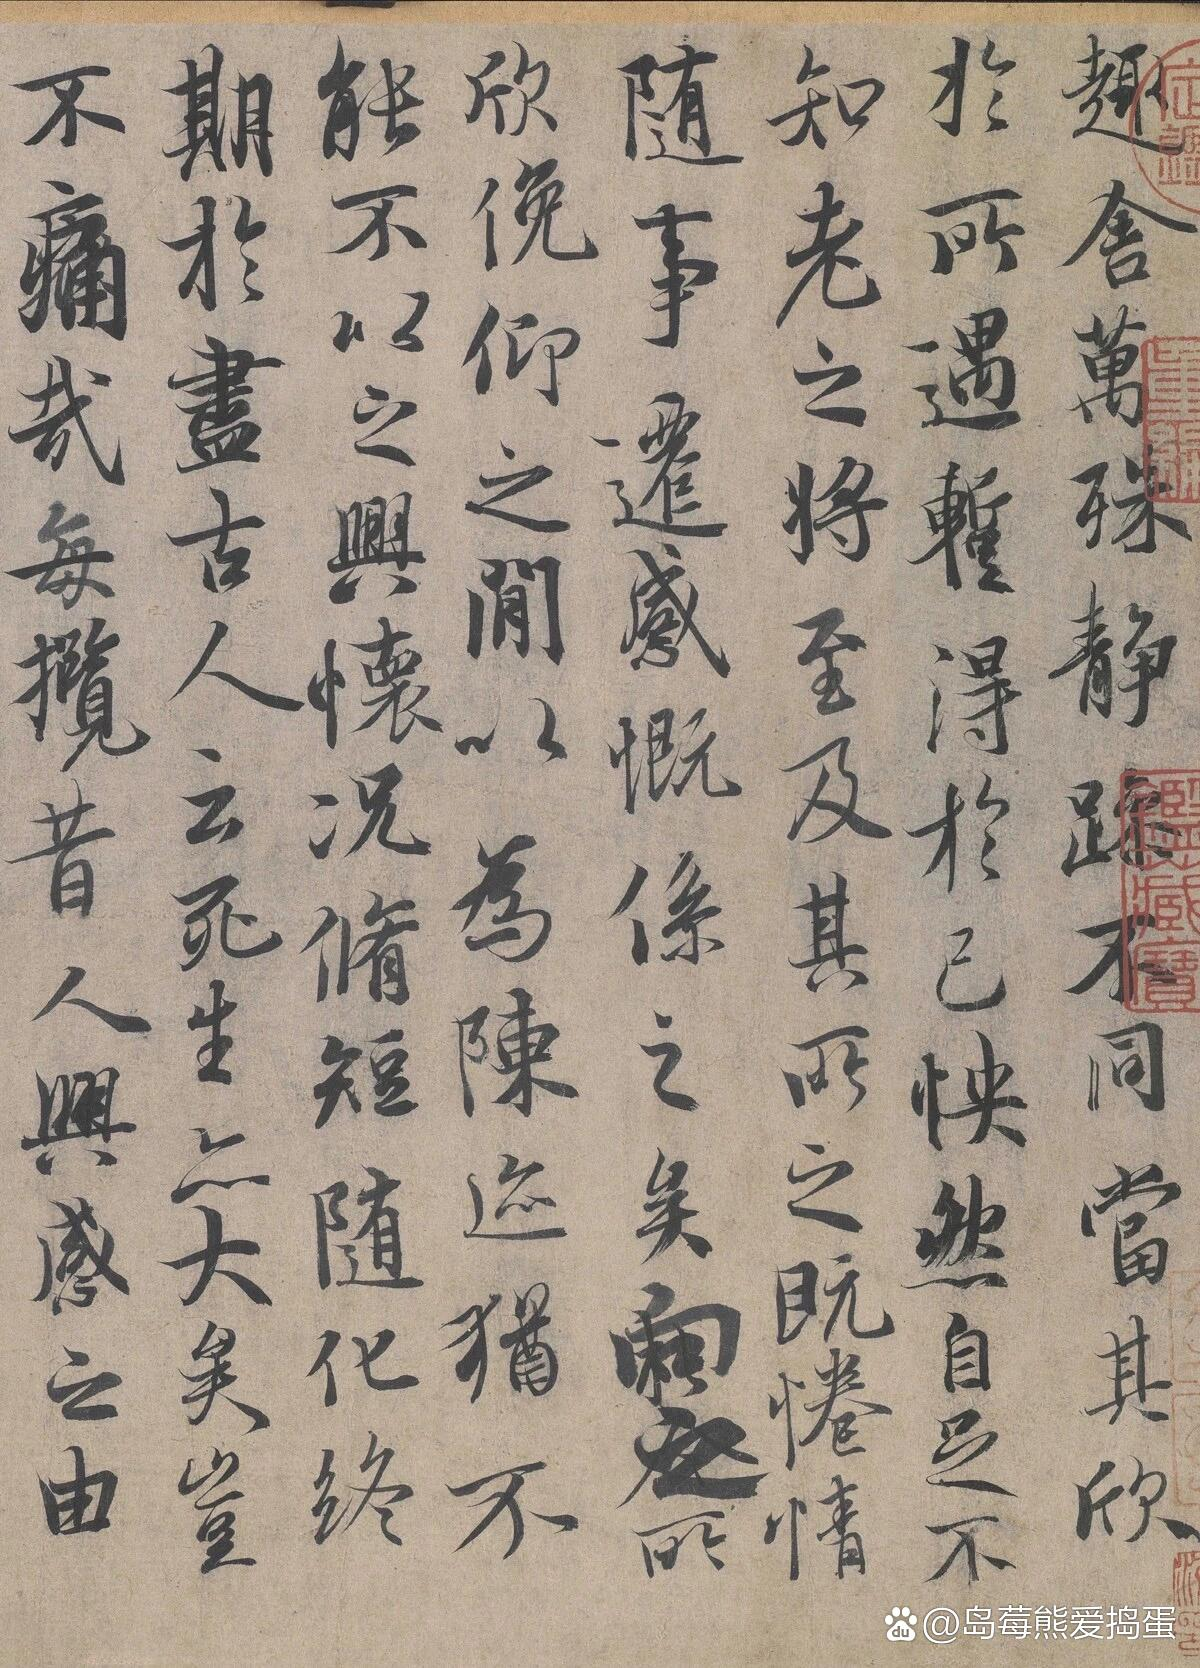 趣舎萬殊静躁不同當其欣
於所遇暫得於己怏然自足不
知老之將至及其所之既惓情
随事遷感慨係之矣向之所
欣俛仰之閒以為陳迹猶不
能不以之興懷况脩短随化終
期於盡古人云死生亦大矣豈
不痛哉每攬昔人興感之由
@岛莓熊爱捣蛋